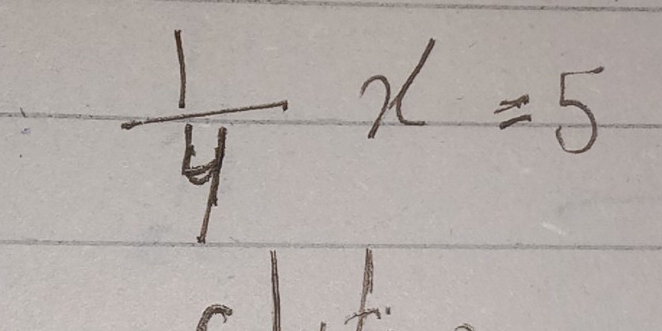 1/4 x = 5